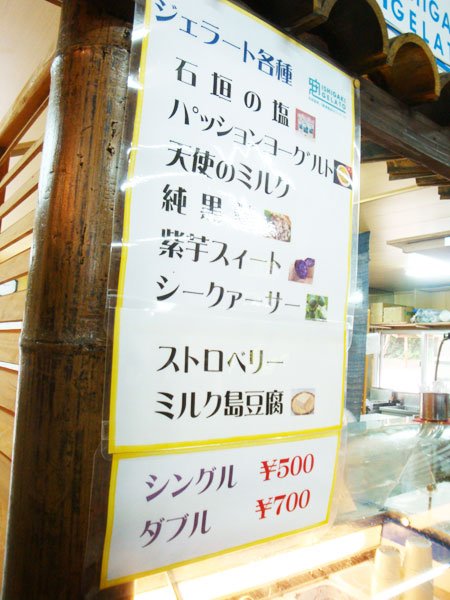 ジェラート各種
ISHIGAKI
GELATO
石垣の塩
パッションヨーグルト
天使のミルク
純黒
紫芋スィート
シークァーサー
ストロベリー
ミルク島豆腐
シングル ¥500
ダブル ¥700